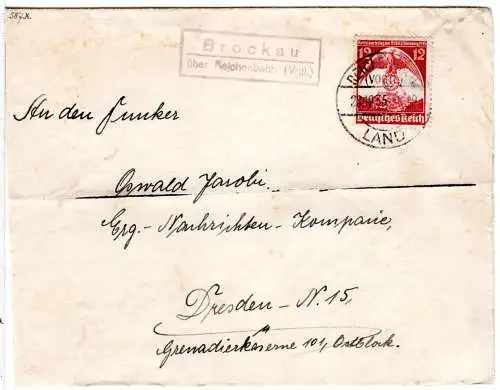 587.X.
Brockau
über Reichenbach (Vogtl.)
12 12
Deutsches Reich
(VOGTL)
LAND
An den Funker
Oswald Jacobi
Erg.-Nachrichten-Kompanie,
Dresden-N.15,
Grenadierkaserne 101, Ostblock.